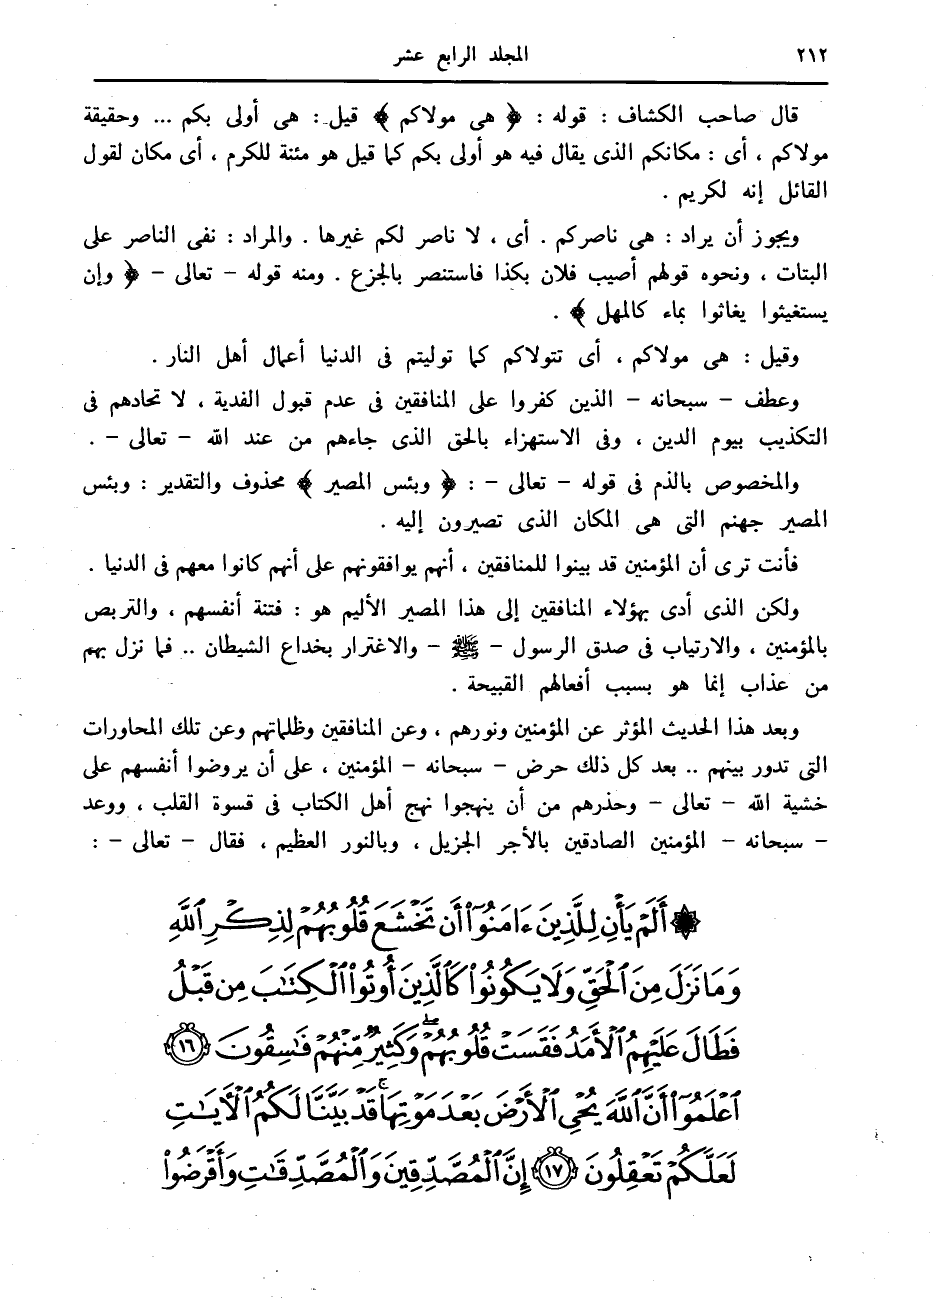 ٢١٢
المجلد الرابع عشر
قال صاحب الكشاف : قوله : ﴿ هى مولاكم ﴾ قيل : هى أولى بكم ... وحقيقة
مولاكم ، أى : مكانكم الذى يقال فيه هو أولى بكم كما قيل هو مئنة للكرم ، أى مكان لقول
القائل إنه لكريم .
ويجوز أن يراد : هى ناصركم . أى ، لا ناصر لكم غيرها . والمراد : نفى الناصر على
البتات ، ونحوه قولهم أصيب فلان بكذا فاستنصر بالجزع . ومنه قوله – تعالى – ﴿ وإن
يستغيثوا يغاثوا بماء كالمهل ﴾ .
وقيل : هى مولاكم ، أى تتولاكم كما توليتم فى الدنيا أعمال أهل النار .
وعطف – سبحانه – الذين كفروا على المنافقين فى عدم قبول الفدية ، لا تحادهم فى
التكذيب بيوم الدين ، وفى الاستهزاء بالحق الذى جاءهم من عند الله – تعالى – .
والمخصوص بالذم فى قوله – تعالى – : ﴿ وبئس المصير ﴾ محذوف والتقدير : وبئس
المصير جهنم التى هى المكان الذى تصيرون إليه .
فأنت ترى أن المؤمنين قد بينوا للمنافقين ، أنهم يوافقونهم على أنهم كانوا معهم فى الدنيا .
ولكن الذى أدى بهؤلاء المنافقين إلى هذا المصير الأليم هو : فتنة أنفسهم ، والتربص
بالمؤمنين ، والارتياب فى صدق الرسول – ﷺ – والاغترار بخداع الشيطان .. فما نزل بهم
من عذاب إنما هو بسبب أفعالهم القبيحة .
وبعد هذا الحديث المؤثر عن المؤمنين ونورهم ، وعن المنافقين وظلماتهم وعن تلك المحاورات
التى تدور بينهم .. بعد كل ذلك حرض – سبحانه – المؤمنين ، على أن يروضوا أنفسهم على
خشية الله – تعالى – وحذرهم من أن ينهجوا نهج أهل الكتاب فى قسوة القلب ، ووعد
– سبحانه – المؤمنين الصادقين بالأجر الجزيل ، وبالنور العظيم ، فقال – تعالى – :
۞ أَلَمْ يَأْنِ لِلَّذِينَ ءَامَنُوٓا۟ أَن تَخْشَعَ قُلُوبُهُمْ لِذِكْرِ ٱللَّهِ
وَمَا نَزَلَ مِنَ ٱلْحَقِّ وَلَا يَكُونُوا۟ كَٱلَّذِينَ أُوتُوا۟ ٱلْكِتَٰبَ مِن قَبْلُ
فَطَالَ عَلَيْهِمُ ٱلْأَمَدُ فَقَسَتْ قُلُوبُهُمْ ۖ وَكَثِيرٌ مِّنْهُمْ فَٰسِقُونَ ١٦
ٱعْلَمُوٓا۟ أَنَّ ٱللَّهَ يُحْىِ ٱلْأَرْضَ بَعْدَ مَوْتِهَا ۚ قَدْ بَيَّنَّا لَكُمُ ٱلْءَايَٰتِ
لَعَلَّكُمْ تَعْقِلُونَ ١٧ إِنَّ ٱلْمُصَّدِّقِينَ وَٱلْمُصَّدِّقَٰتِ وَأَقْرَضُوا۟